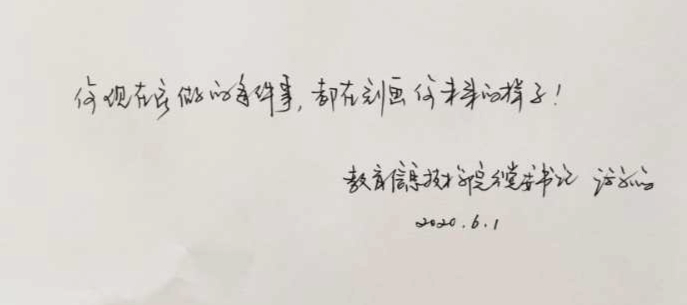 你现在所做的每件事，都在刻画你未来的样子！
教育信息技术学院党委书记
2020.6.1